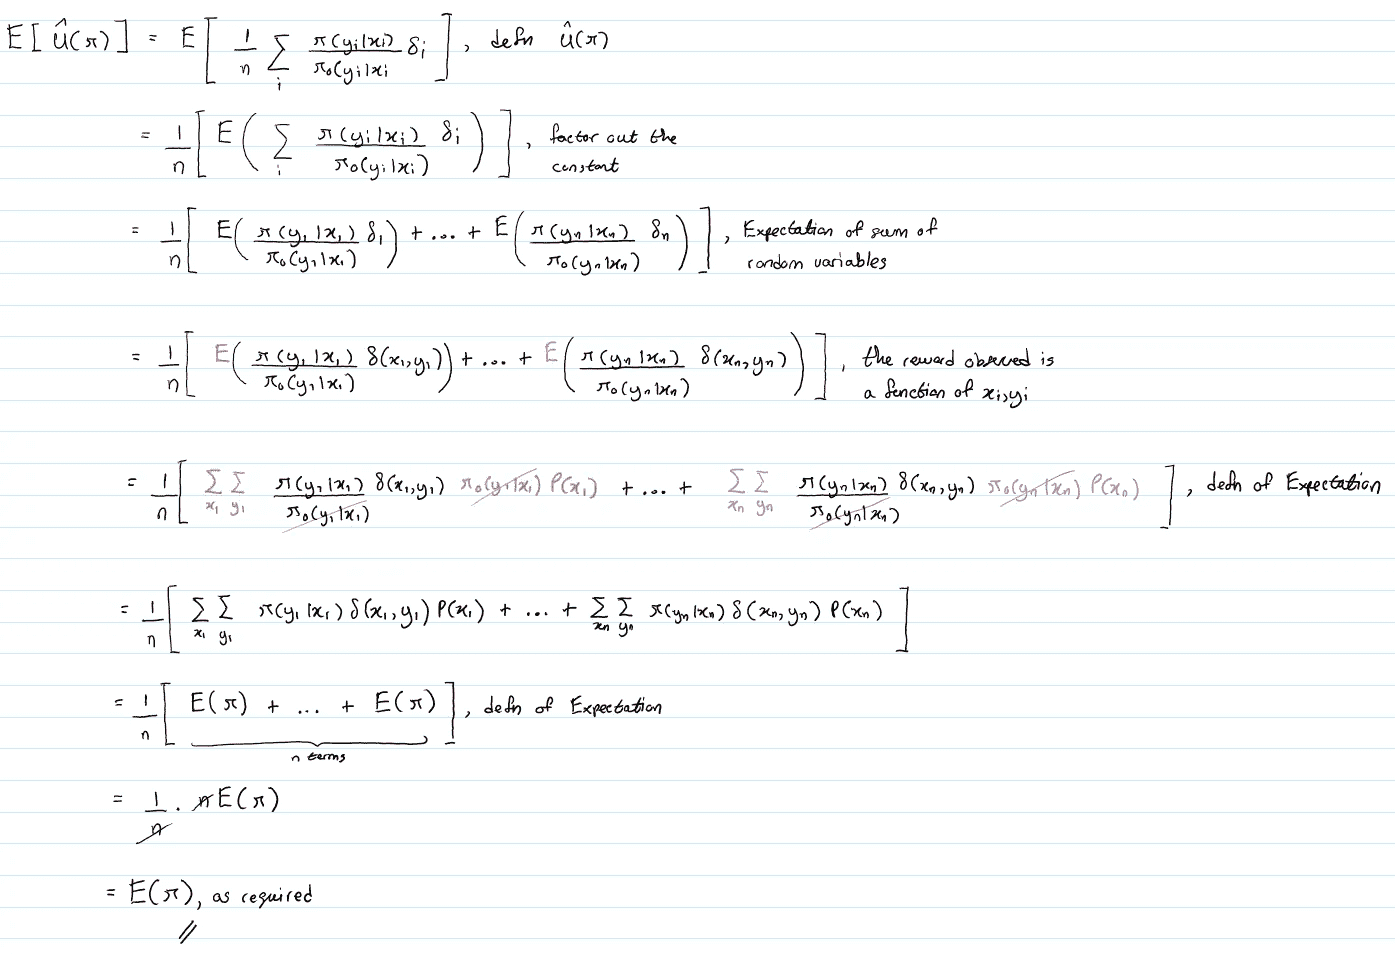 E[ Û(π) ] = E[ 1/n Σ_i π(y_i|x_i)/π₀(y_i|x_i δ_i ], defn û(π)
= 1/n [ E( Σ_i π(y_i|x_i)/π₀(y_i|x_i) δ_i ) ], factor out the constant
= 1/n [ E( π(y₁|x₁)/π₀(y₁|x₁) δ₁ ) + ... + E( π(y_n|x_n)/π₀(y_n|x_n) δ_n ) ], Expectation of sum of random variables
= 1/n [ E( π(y₁|x₁)/π₀(y₁|x₁) δ(x₁,y₁) ) + ... + E( π(y_n|x_n)/π₀(y_n|x_n) δ(x_n,y_n) ) ], the reward observed is a function of x_i,y_i
= 1/n [ Σ_x₁ Σ_y₁ π(y₁|x₁)/π₀(y₁|x₁) δ(x₁,y₁) π₀(y₁|x₁) P(x₁) + ... + Σ_x_n Σ_y_n π(y_n|x_n)/π₀(y_n|x_n) δ(x_n,y_n) π₀(y_n|x_n) P(x_n) ], defn of Expectation
= 1/n [ Σ_x₁ Σ_y₁ π(y₁|x₁) δ(x₁,y₁) P(x₁) + ... + Σ_x_n Σ_y_n π(y_n|x_n) δ(x_n,y_n) P(x_n) ]
= 1/n [ E(π) + ... + E(π) ], defn of Expectation
n terms
= 1/n . n E(π)
= E(π), as required
//